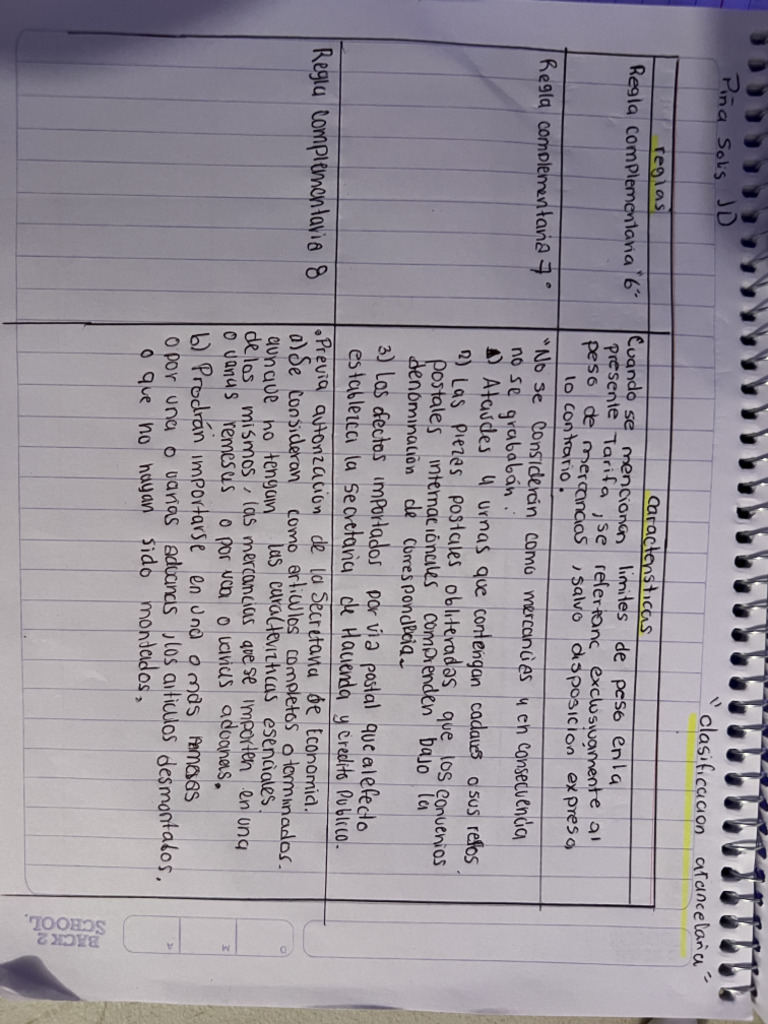 Piña Solis JD
"clasificacion arancelaria"
reglas
caracteristicas
Regla complementaria "6"
Cuando se mencionan limites de peso en la
presente Tarifa, se referianc exclusivamente al
peso de mercancias, salvo disposicion expresa
lo contrario.
Regla complementaria 7°
"No se considerán como mercancies y en consecuenda
no se grababán:
1) Ataúdes y urnas que contengan cadaves o sus restos.
2) Las piezas postales obliteradas que los convenios
postales internaciónales comprenden bajo la
denóminación de correspondecia.
3) Los efectos importados por via postal que al efecto
establezca la Secretaria de Hacienda y Credito Publico.
Regla complementaria 8
• Previa autorización de la Secretaria de Economia.
a) Se consideran como articulos completos o terminados.
aunque no tengan las caracterizticas esenciales
de los mismos, las mercancias que se importen en una
o varias remesas o por una o varias aduanas.
b) Prodrán importarse en una o más remesas
o por una o varias aduanas, los articulos desmontados,
o que no hayan sido montados,
BACK 2
SCHOOL.
D
M
A